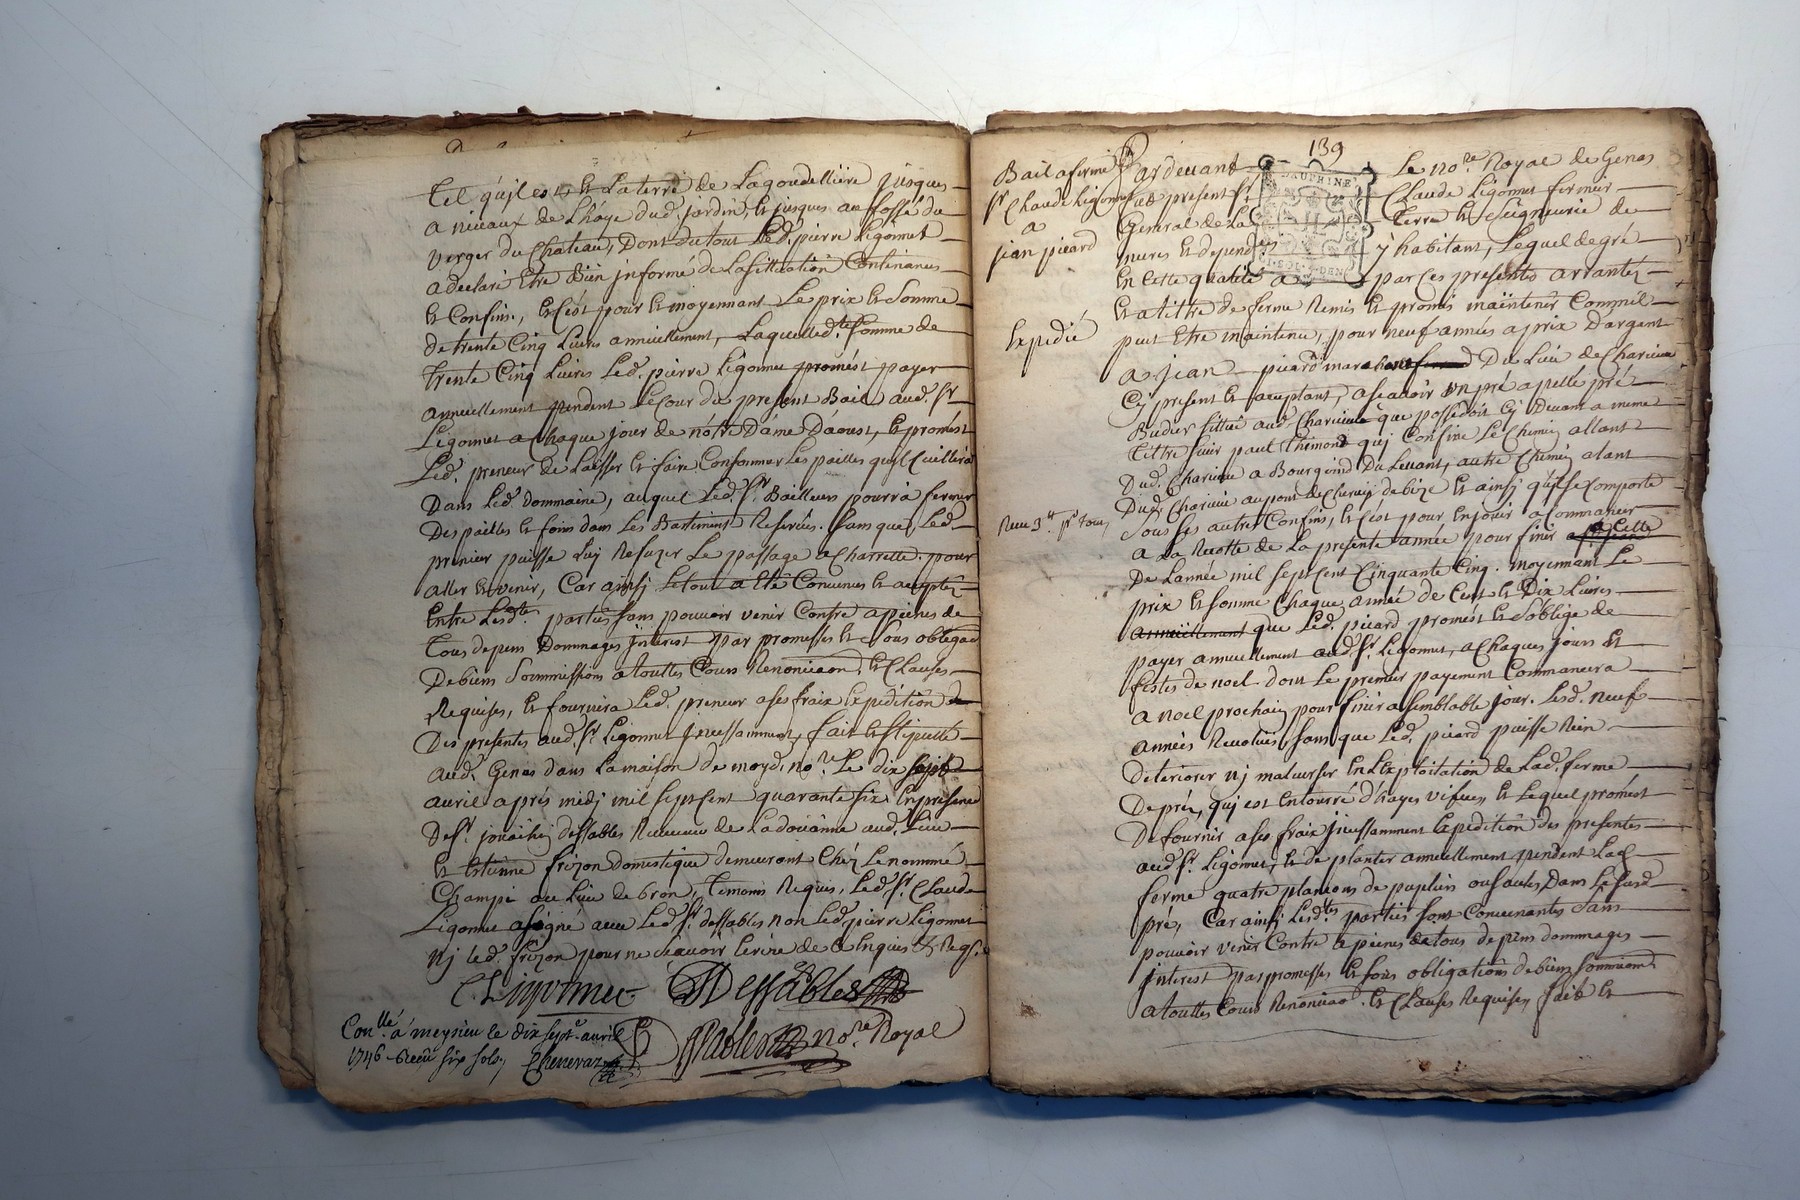 Tel qu'il est, et la terre de Lagoudelliere jusques
a niveaux de L'haye dud. jardin, et jusques au fossé du
verger du Chateau, Dont du tout Led. pierre Ligonnet
a declaré Etre Bien jnformé de la sittuation Contenances
et Confins, et C'est pour et moyennant Le prix et somme
de trente Cinq Livres annuellement, Laquelled.te somme de
trente Cinq Livres Led. pierre Ligonnet promést payer
annuellement pendent Le Cour du present Bail aud. Sr
Ligonnet a Chaque jour de nôtre Dáme D'áoust, et promést
Led. preneur de Laisser et faire Consommer Les pailles quyl Cuillera
Dans Led. dommaine, auquel Led. Sr Bailleur pourra fermer
Des pailles et foins dans Les Bastiments Reservés. sans que Led.
preneur puisse Luj Refuzer Le passage a Charrette pour
aller et venir, Car ainsj Le tout a Eté Convenus et accepté
Entre Lesd.tes parties sans pouvoir venir Contre a peines de
Tous depens Dommages jnterest par promesses et sous obligaon
De biens Sommissions a touttes Cours Renonciaon. et Clauses
Requises, et fournira Led. preneur a ses fraix Expédition
Des presentes aud. Sr Ligonnet jncessamment, fait et stipullé
aud. Genas dans La maison de moyd. no.re Le dix sept
avril aprés midj mil sept cent quarante six En presence
De Sr. Dessables Receveur de La doüanne aud. Lieu
Et Estienne frizon domestique demeurant Chéz Le nommé
Champi au Lieu de bron, Temoins Requis, Led. Sr. Claude
Ligonnet a signé avec Led. Sr. dessables non Led. pierre Ligonnet
nj Led. frizon pour ne sçavoir Ecrire de ce Enquis & Reqs.
C Ligonnet Dessables
Con.llé á meysieu le dix sept.e avril
1746 Reçû six sols,
no.re Royal
139
DAUPHINE
Bail a ferme
Sr Claude Ligonnet
a
jean picard
Expedié
Pardevant Le no.re Royal de Genas
Claude Ligonnet fermier
General de La Terre et Seigneurie de
y habitant, Lequel de gré
En Cette qualité a par Ces presentes arrantéz
Et a tittre de ferme Remis et promés maintenir Comm'il
peut Etre maintenu, pour neuf années a prix D'argent
a jean picard Du Lieu de Charieu
Cy present et acceptant, a sçavoir un pré apellé pré
aud. que possedoit Cy Devant a meme
Tittre paul quj Confine Le Chemin allant
Dud. a Bourgoind Du Levant, autre Chemin alant
Dud. au pont de de bize et ainsj qu'il se Comporte
Sous ses autres Confins, et C'est pour En jouir a Commancer
Reçu 3.tt
a La Recolte de La presente année pour finir a Celle
De L'année mil sept cent Cinquante Cinq. moyennant Le
prix et somme Chaque année de Cent et Dix Livres
annuellement que Led. picard promést et s'oblige de
payer annuellement aud. Sr. Ligonnet, a Chaques jours et
festes de noel dont Le premier payement Commancera
a noel prochain pour finir a semblable jour. Lesd. neuf
années Revolues, sans que Led. picard puisse Rien
deteriorer nj malverser En L'Exploitation de Lad. ferme
De pré, quj est Entourré d'hayes vifves, et Lequel promést
De fournir a ses fraix jncessamment Expédition des presentes
aud. Sr. Ligonnet, et de planter annuellement pendent Lad.
ferme quatre plançons de ou saules Dans Le susd.
pré, Car ainsj Lesd.tes parties sont Convenantes Sans
pouvoir venir Contre a peines de tous depens dommages
jnterest par promesses et sous obligations de biens sommissions
a touttes Cours Renonciaon. et Clauses Requises, fait et